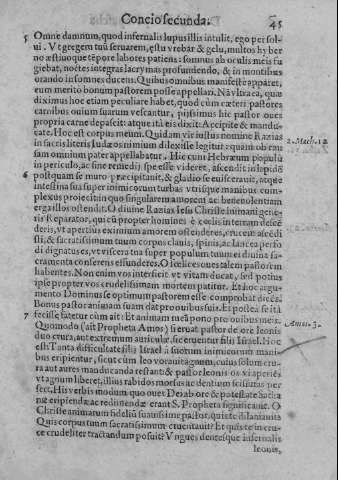 Concio secunda. 45
5 Omne damnum, quod infernalis lupus illis intulit, ego persol-
ui. Vt gregem tuũ seruarem, ęstu vrebar & gelu, multos hyber
no ęstiuoque tẽpore labores patiens: somnus ab oculis meis fu
giebat, noctes integras lacrymas profundendo, & in montibus
orando insomnes ducens. Quibus omnibus manifestè apparet,
eum meritò bonum pastorem posse appellari. Nã vltra ea, quæ
diximus hoc etiam peculiare habet, quod cùm cæteri pastores
carnibus ouium suarum vescantur, pijssimus hic pastor oues
propria carne depascit: atque ità eis dixit: Accipite & mandu-
cate. Hoc est corpus meum. Quidam vir iustus nomine Razias
in sacris literis Iudæos nimium dilexisse legitur: quam ob cau
sam omnium pater appellabatur. Hic cùm Hebræum populũ
in periculo, ac sine remedij spe esse videret, ascendit in
6 postquam se muro præcipitauit, & gladio se euiscerauit, atque
intestina sua super inimicorum turbas vtrisque manibus com-
plexus proiecit: in quo singularem amorem ac beneuolentiam
erga illos ostendit. O diuine Razias Iesu Christe humani gene-
ris Reparator, qui cũ propter homines è cœlis in terram descẽ
deris, vt apertius eximium amorem ostenderes, crucem ascẽdi
sti, & sacratissimum tuum corpus clauis, spinis, ac lancea perfo
di dignatus es, vt viscera tua super populum tuum et diuina sa-
cramenta conferens effunderes. O fœlices oues talem pastorem
habentes. Non enim vos interficit vt vitam ducat, sed potius
ipse propter vos crudelissimam mortem patitur. Et hoc argu-
mento Dominus se optimum pastorem esse comprobat dicẽs.
Bonus pastor animam suam dat pro ouibus suis. Et postea se ità
7 fecisse fatetur cùm ait: Et animam meã pono pro ouibus meis.
Quomodo (ait Propheta Amos) si eruat pastor de ore leonis
duo crura, aut extremum auriculæ, sic eruentur filij Israel. Hoc
est: Tanta difficultate filij Israel à suorum inimicorum mani-
bus eripientur, sicut cùm leo vorauit agnum, cuius solùm cru-
ra aut aures manducanda restant: & pastor leonis os vi aperiẽs
vt agnum liberet, illius rabidos morsus ac dentium scissuras per
fert. His verbis modum quo oues Dei ab ore & potestate Sacha
næ eripiendæ ac redimendæ erant S. Propheta significauit. O
Christe animarum fidelium suauissime pastor, quis te dilaniauit?
Quis corpus tuum sacratissimum cruentauit? Et quis te in cru-
ce crudeliter tractandum posuit? Vngues dentesque infernalis
leonis,
2. Mach. 14
Amos. 3.